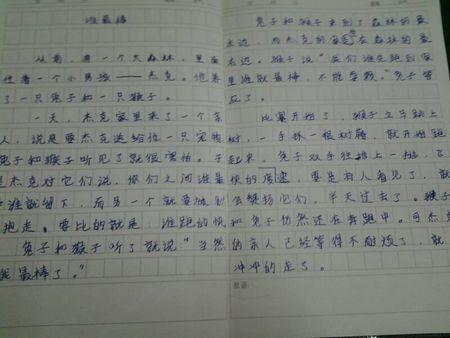 谁最棒
从前，有一个大森林，里面
住着一个小男孩——杰克。他养
了一只兔子和一只猴子。
一天，杰克家里来了一个客
人，说是要杰克送给他一只宠物
兔子和猴子听见了都很害怕。于
是杰克对它们说，你们之间谁最
谁就留下，而另一个就要被别
抱走。要比的就是，谁跑的快
兔子和猴子听了就说"当然
我最棒了。"
兔子和猴子来到了森林的最
左边，而杰克的家在森林的最
右边。猴子说"我们谁先跑到家
里谁就最棒，不能拿教。"兔子答
应了。
比赛开始了，猴子立马跳上
树，一手抓一根树藤，就开始跑
起来，兔子双手往前上一
快的度速，要是有人看见了，就
它们，半天过去了。猴子
和兔子仍然还在奔跑中。可杰克
的亲人已经等得不耐烦了，就
冲冲的走了。
批语：